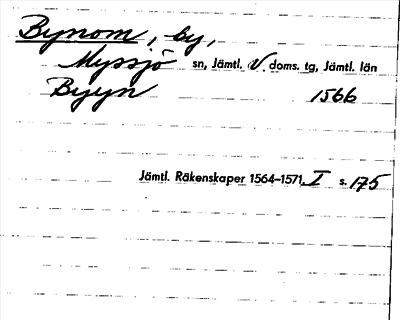 Bynom, by,
Myssjö sn, Jämtl. V. doms. tg, Jämtl. län
Byyn 1566
Jämtl. Räkenskaper 1564–1571. I s. 175